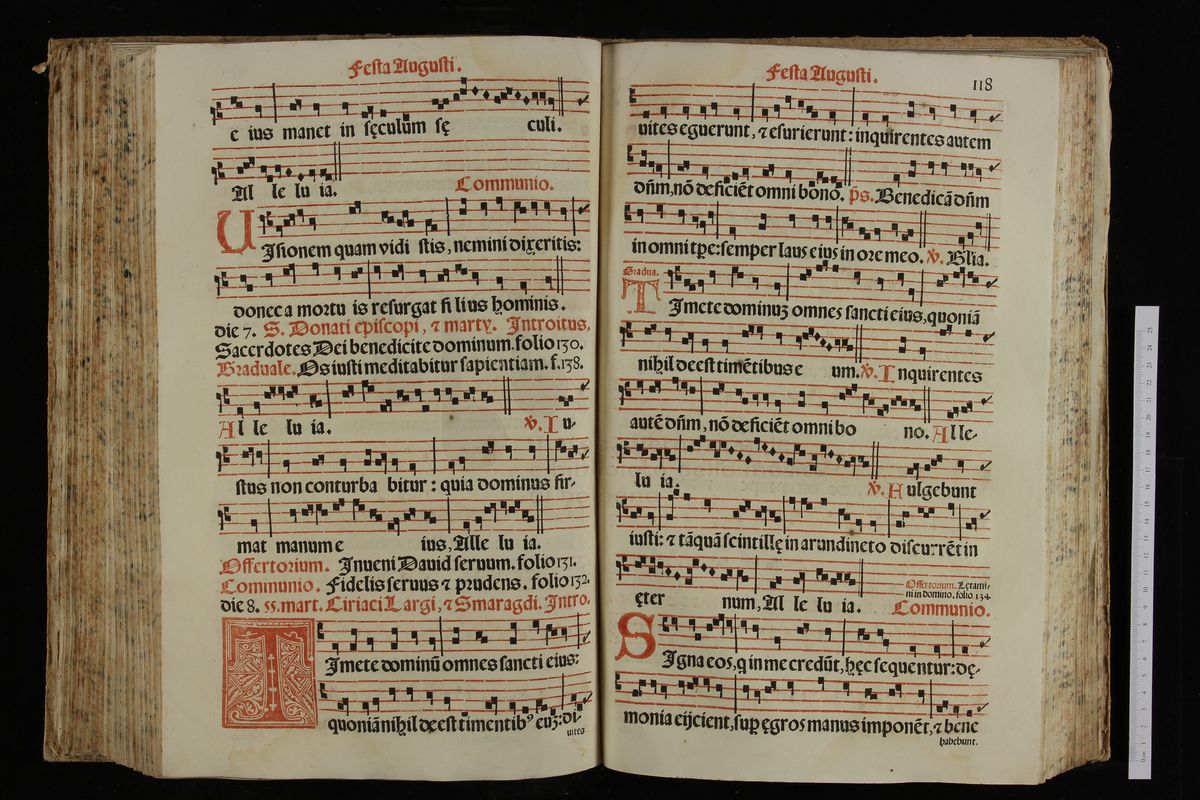 Festa Augusti.
e ius manet in sęculum sę culi.
Al le lu ia. Communio.
UIsionem quam vidi stis, nemini dixeritis:
donec a mortu is resurgat fi lius hominis.
die 7. S. Donati episcopi, ⁊ marty. Introitus.
Sacerdotes Dei benedicite dominum. folio 130.
Graduale. Os iusti meditabitur sapientiam. f. 138.
Al le lu ia. ℣. Iu-
stus non conturba bitur: quia dominus fir-
mat manum e ius, Alle lu ia.
Offertorium. Inueni Dauid seruum. folio 131.
Communio. Fidelis seruus ⁊ prudens. folio 132.
die 8. ss. mart. Ciriaci Largi, ⁊ Smaragdi. Intro.
TImete dominū omnes sancti eius:
quoniā nihil deest timentibꝰ euꝫ: di-
uites
Festa Augusti.
118
uites eguerunt, ⁊ esurierunt: inquirentes autem
dn̄m, nō deficiēt omni bono. ps. Benedicā dn̄m
in omni tp̄e: semper laus eius in ore meo. ℣. Glīa.
Gradua.
TImete dominuꝫ omnes sancti eius, quoniā
nihil deest timētibus e um. ℣. Inquirentes
autē dn̄m, nō deficiēt omni bo no. Alle-
lu ia. ℣. Fulgebunt
iusti: ⁊ tāquā scintillę in arundineto discurrēt in
Offertorium. Lętami-
ni in domino. folio 134.
ęter num, Al le lu ia. Communio.
SIgna eos, q in me credūt, hęc sequentur: dę-
monia eijcient, suꝑ ęgros manus imponēt, ⁊ bene
habebunt.